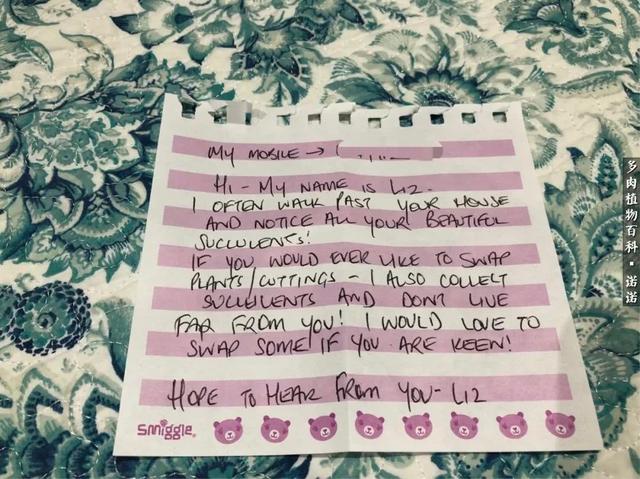 MY MOBILE →
HI - MY NAME IS LIZ.
I OFTEN WALK PAST YOUR HOUSE
AND NOTICE ALL YOUR BEAUTIFUL
SUCCULENTS!
IF YOU WOULD EVER LIKE TO SWAP
PLANTS/CUTTINGS - I ALSO COLLECT
SUCCULENTS AND DONT LIVE
FAR FROM YOU! I WOULD LOVE TO
SWAP SOME IF YOU ARE KEEN!
HOPE TO HEAR FROM YOU - LIZ
Smiggle
多肉植物百科·诺诺